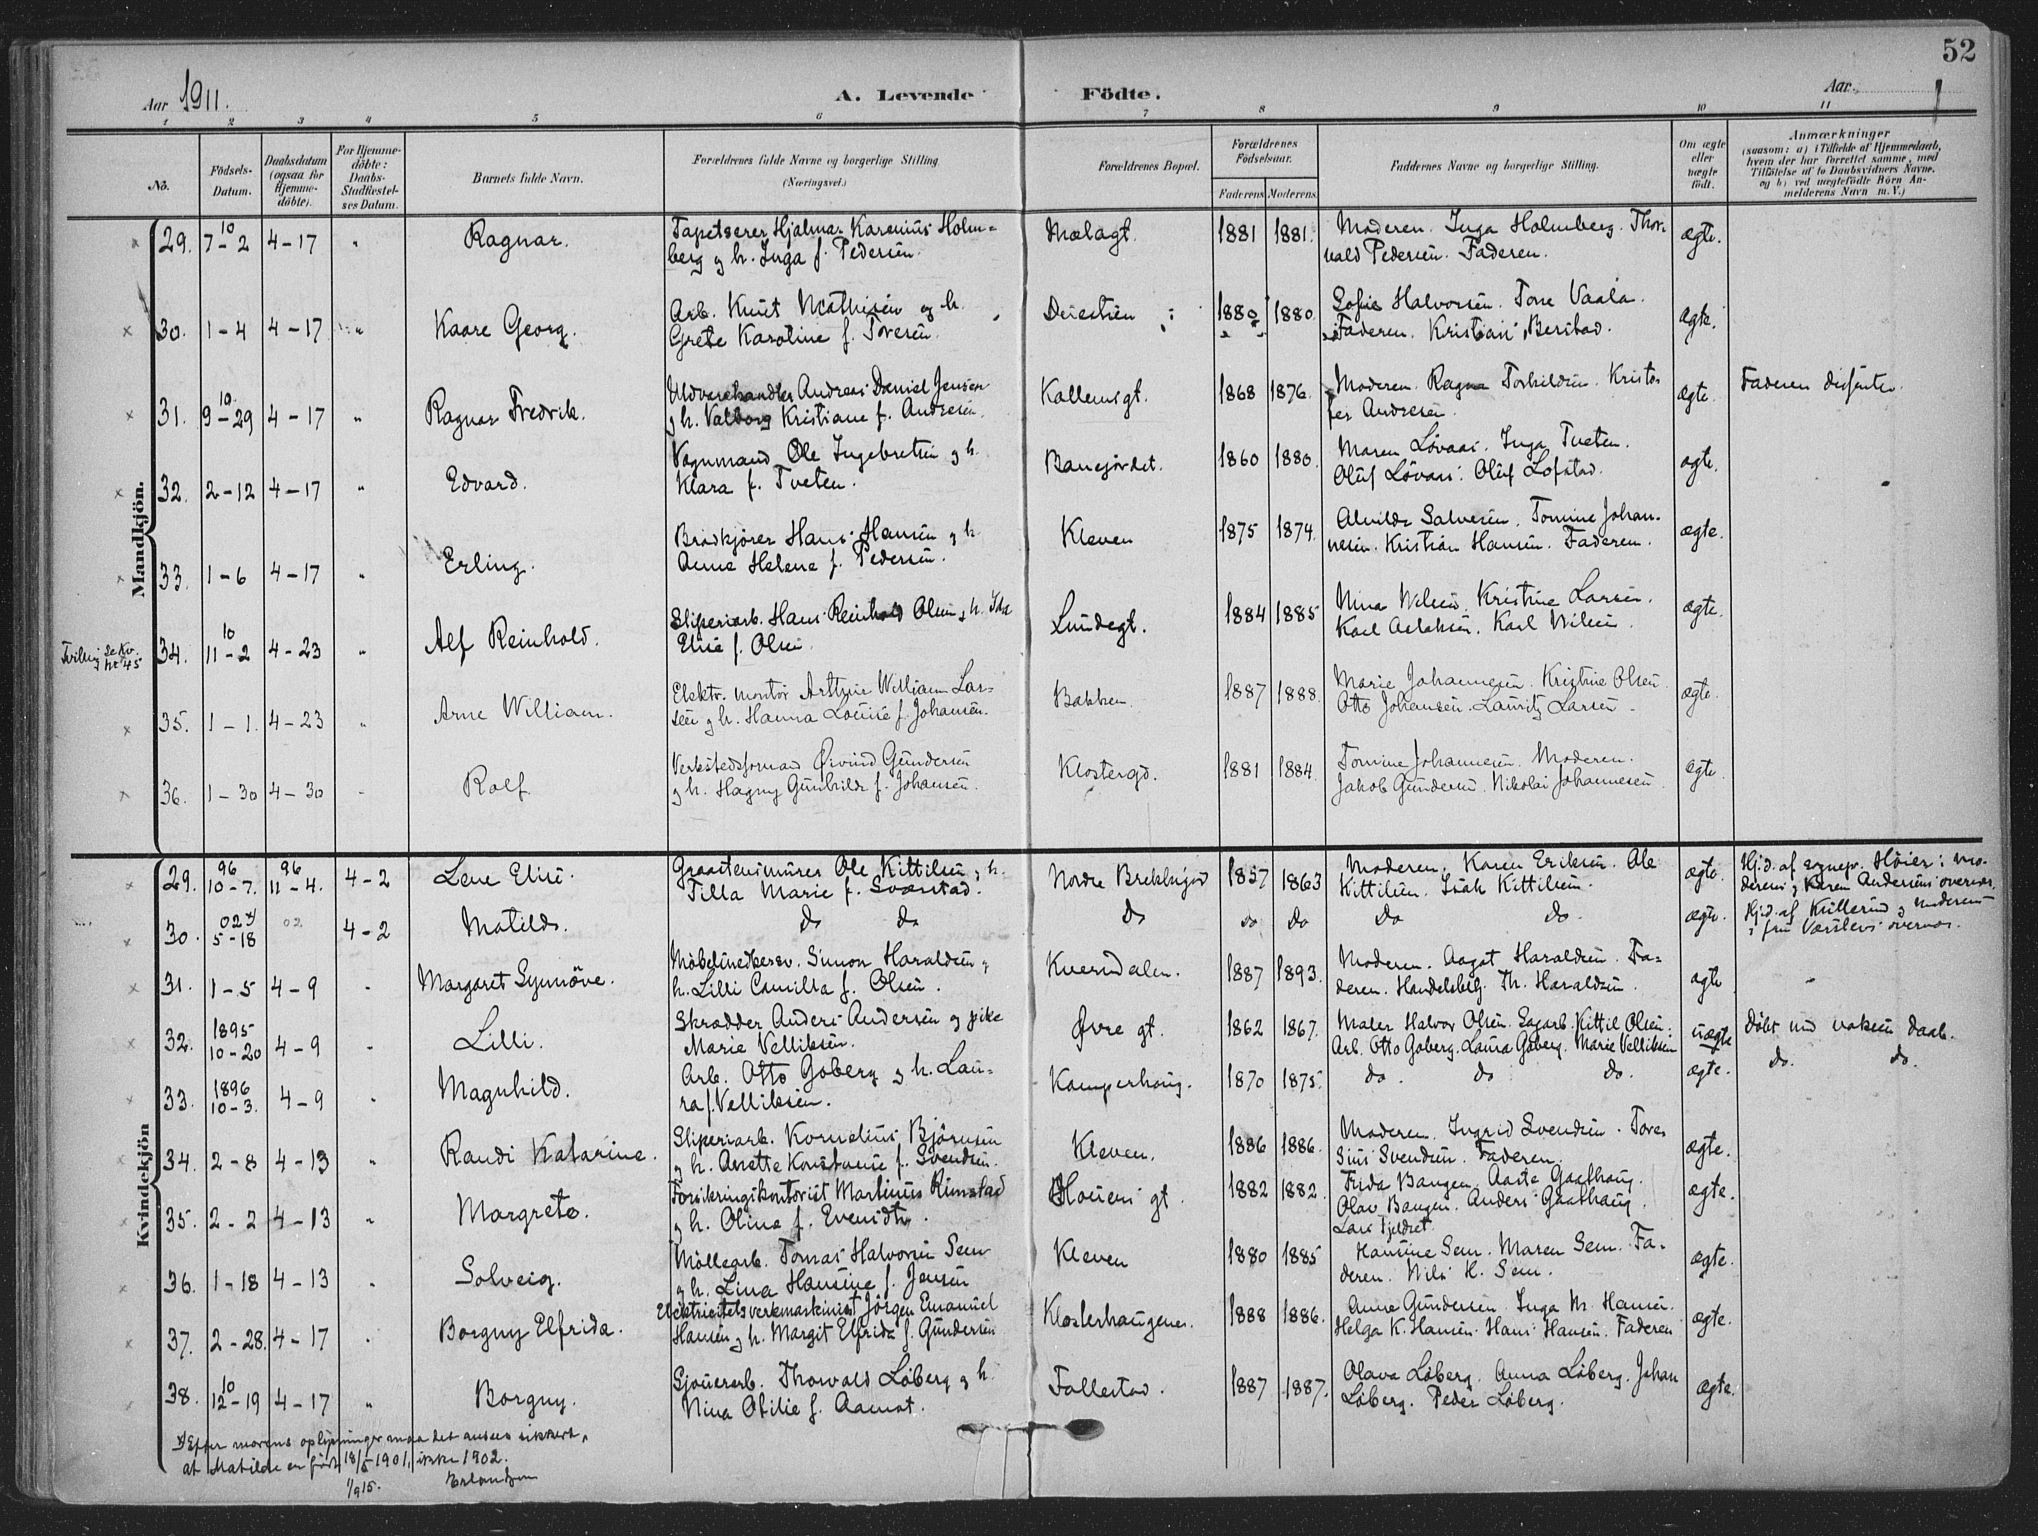 52
Aar 1911.
A. Levende Födte.
Aar
1 2 3 4 5 6 7 8 9 10 11
No.
Födsels-Datum.
Daabsdatum (ogsaa for Hjemme-döbte).
For Hjemme-döbte: Daabs-Stadfæstel-ses Datum.
Barnets fulde Navn.
Forældrenes fulde Navne og borgerlige Stilling (Næringsvei.)
Forældrenes Bopæl.
Forældrenes Födselsaar.
Faderens Moderens
Faddernes Navne og borgerlige Stilling.
Om ægte eller uægte födt.
Anmærkninger
(saasom: a) i Tilfælde af Hjemmedaab, hvem der har forrettet samme, med Tilföielse af to Daabsvidners Navne, og b) ved uægtefödte Börn An-melderens Navn m. V.)
Mandkjön.
29. 7-10-2 4-17 " Ragnar. Tapetserer Hjalmar Karenius Holm-
berg g h. Inga f. Pedersen. Mælagt. 1881 1881. Moderen. Inga Holmberg. Thor-
vald Pedersen. Faderen. ægte.
30. 1-4 4-17 " Kaare Georg. Arb. Knut Mathisen og h.
Grete Karoline f. Toresen. 1880 1880. Sofie Halvorsen. Tore Vaala.
Faderen. Kristian Berstad. ægte.
31. 9-10-29 4-17 " Ragnar Fredrik. Uldvarehandler Andreas Daniel Jensen
g h. Valborg Kristiane f. Andresen. Kallemsgt. 1868 1876. Moderen. Ragna Torkildsen. Kristo
fer Andresen. ægte. Faderen dissenter.
32. 2-12 4-17 " Edvard. Vognmand Ole Ingebretsen g h.
Klara f. Tveten. Banejordet. 1860 1880. Maren Lövaas. Inga Tveten.
Oluf Lövaas. Oluf Lofstad. ægte.
33. 1-6 4-17 " Erling. Brödkjörer Hans Hansen g h.
Anna Helene f. Pedersen. Kleven 1875 1874. Alvilde Salvesen. Tomine Johan-
nesen. Kristian Hansen. Faderen. ægte.
Tvilling se Kv.
Nr 45
34. 11-10-2 4-23 Alf Reinhold. Sliperiarb. Hans Reinhold Olsen g h. Ida
Elise f. Olsen Lundegt. 1884 1885 Nina Nilsen. Kristine Larsen.
Karl Aslaksen. Karl Nilsen. ægte.
35. 1-1. 4-23 " Arne William. Elektr. montör Arthur William Lar-
sen g h. Hanna Lovise f. Johansen. Bakken 1887 1888. Marie Johannesen. Kristine Olsen.
Otto Johansen. Lauritz Larsen. ægte.
36. 1-30 4-30 - Rolf. Verkstedsformand Øivind Gundersen
g h. Hagny Gunhilde f. Johansen. Klostergd. 1881 1884. Tomine Johannesen. Moderen.
Jakob Gundersen. Nikolai Johannesen. ægte.
Kvindekjön
29. 96 10-7. 96 11-4. 4-2 Lene Elise. Graastensmurer Ole Kittilsen g h.
Tilla Marie f. Sværstad. Nordre Brekkejord 1857 1863 Moderen. Karen Eriksen. Ole
Kittilsen. Isak Kittilsen. ægte. Hj.d. af sognepr. Höier; mo-
derens g Karen Andersens overvær.
30. 02 x) 5-18 02 4-2 Matilde. do do do do do do do. ægte. Hj.d. af Killerud g moderens
g fru Værslevs overvær.
31. 1-5 4-9 - Margaret Synnöve. Möbelsnedkersv. Simon Haraldsen g
h. Lilli Camilla f. Olsen. Kverndalen. 1887 1893. Moderen. Aagot Haraldsen. Fa-
deren. Handelsbetj. Th. Haraldsen. ægte
32. 1895 10-20 4-9 - Lilli. Skrædder Anders Andersen og pike
Marie Velliksen. Øvre gt. 1862 1867. Maler Halvor Olsen. Sagarb. Kittil Olsen.
Arb. Otto Goberg. Laura Goberg. Marie Velliksen uægte Döbt ved voksen daab.
33. 1896 10-3. 4-9 Magnhild. Arb. Otto Goberg g h. Lau-
ra f. Velliksen. Kamperhaug. 1870 1875. do. do do. ægte. do. do.
34. 2-8 4-13 " Randi Katarine. Sliperiarb. Kornelius Björnsen
g h. Anette Konstanse f. Svendsen. Kleven. 1886 1886. Moderen. Ingrid Svendsen. Tores
Sius Svendsen. Faderen. ægte.
35. 2-2 4-13 " Margrete. Forsikringskontorist Martinus Rimstad
g h. Olina f. Evensdtr. Houens gt. 1882 1882. Frida Bangen. Aaste Gaathaug.
Olav Bangen. Anders Gaathaug.
Lars Fjeldset. ægte.
36. 1-18 4-13 " Solveig. Möllearb. Tomas Halvorsen Sem
g h. Lina Hansine f. Jensen Kleven 1880 1885 Hansine Sem. Maren Sem. Fa-
deren. Nils H. Sem. ægte.
37. 2-28. 4-17 Borgny Elfrida. Elektricitetsverkmaskinist Jörgen Emanuel
Hansen g h. Margit Elfrida f. Gundersen Klosterhaugene. 1888 1886. Anne Gundersen. Inga M. Hansen.
Helga K. Hansen. Hans Hansen. Faderen ægte.
38. 12-10-19 4-17 " Borgny. Sjouerarb. Thorvald Löberg g h.
Nina Otilie f. Aamot. Follestad. 1887 1887. Olava Löberg. Anna Löberg. Johan
Löberg. Peder Löberg. ægte.
x) Efter morens oplysninger maa det ansees sikkert,
at Matilde er född 18/5 1901, ikke 1902.
1/9 15. Erlandsen